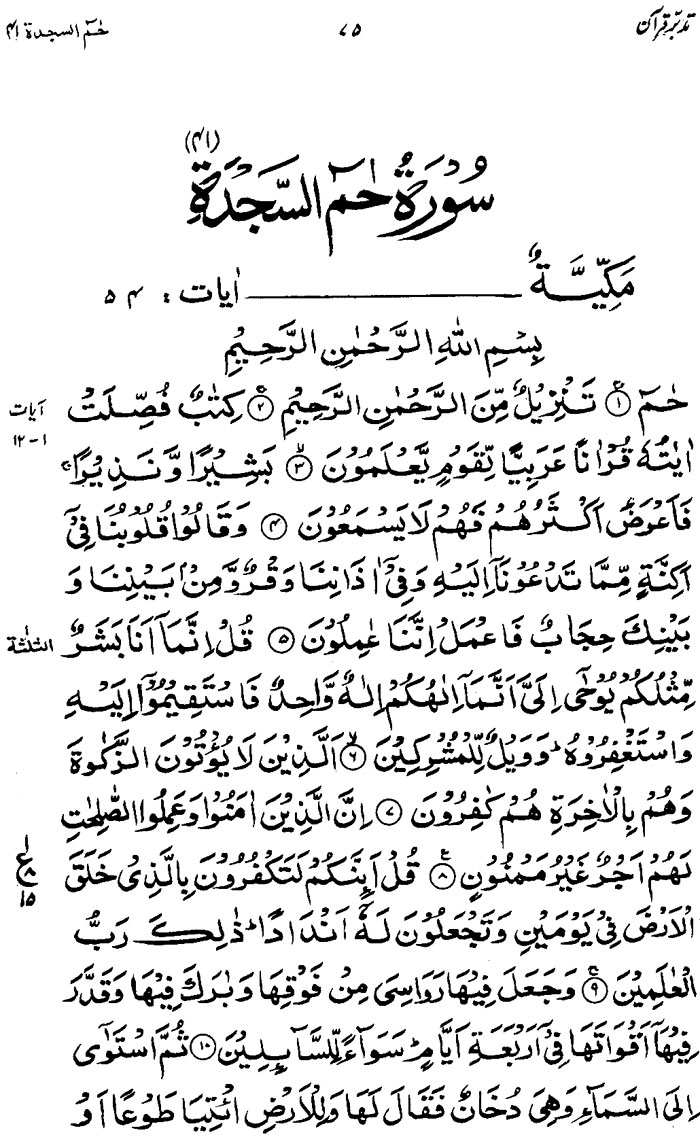 تدبّرِ قرآن ۷۵ حٰمٓ السجدة ۴۱
(۴۱)
سُوْرَةُ حٰمٓ السَّجْدَةِ
مَكِّيَّةٌ ايٰات : ۵۴
بِسْمِ اللهِ الرَّحْمٰنِ الرَّحِيْمِ
حٰمٓ ۚ﴿۱﴾ تَنْزِيْلٌ مِّنَ الرَّحْمٰنِ الرَّحِيْمِ ۚ﴿۲﴾ كِتٰبٌ فُصِّلَتْ آیات
اٰيٰتُهٗ قُرْاٰنًا عَرَبِيًّا لِّقَوْمٍ يَّعْلَمُوْنَ ۙ﴿۳﴾ بَشِيْرًا وَّ نَذِيْرًا ۚ ۱-۱۲
فَاَعْرَضَ اَكْثَرُهُمْ فَهُمْ لَا يَسْمَعُوْنَ ﴿۴﴾ وَ قَالُوْا قُلُوْبُنَا فِيْٓ
اَكِنَّةٍ مِّمَّا تَدْعُوْنَآ اِلَيْهِ وَفِيْٓ اٰذَانِنَا وَقْرٌ وَّمِنْۢ بَيْنِنَا وَ
بَيْنِكَ حِجَابٌ فَاعْمَلْ اِنَّنَا عٰمِلُوْنَ ﴿۵﴾ قُلْ اِنَّمَآ اَنَا بَشَرٌ الثلٰثة
مِّثْلُكُمْ يُوْحٰٓى اِلَيَّ اَنَّمَآ اِلٰهُكُمْ اِلٰهٌ وَّاحِدٌ فَاسْتَقِيْمُوْٓا اِلَيْهِ
وَاسْتَغْفِرُوْهُ ؕ وَوَيْلٌ لِّلْمُشْرِكِيْنَ ۙ﴿۶﴾ الَّذِيْنَ لَا يُؤْتُوْنَ الزَّكٰوةَ
وَهُمْ بِالْاٰخِرَةِ هُمْ كٰفِرُوْنَ ﴿۷﴾ اِنَّ الَّذِيْنَ اٰمَنُوْا وَعَمِلُوا الصّٰلِحٰتِ
لَهُمْ اَجْرٌ غَيْرُ مَمْنُوْنٍ ۚ﴿۸﴾ قُلْ اَئِنَّكُمْ لَتَكْفُرُوْنَ بِالَّذِيْ خَلَقَ ع ۸ ۱۵
الْاَرْضَ فِيْ يَوْمَيْنِ وَتَجْعَلُوْنَ لَهٗٓ اَنْدَادًا ؕ ذٰلِكَ رَبُّ
الْعٰلَمِيْنَ ۚ﴿۹﴾ وَجَعَلَ فِيْهَا رَوَاسِيَ مِنْ فَوْقِهَا وَبٰرَكَ فِيْهَا وَقَدَّرَ
فِيْهَآ اَقْوَاتَهَا فِيْٓ اَرْبَعَةِ اَيَّامٍ ؕ سَوَآءً لِّلسَّآئِلِيْنَ ﴿۱۰﴾ ثُمَّ اسْتَوٰٓى
اِلَى السَّمَآءِ وَهِيَ دُخَانٌ فَقَالَ لَهَا وَلِلْاَرْضِ ائْتِيَا طَوْعًا اَوْ